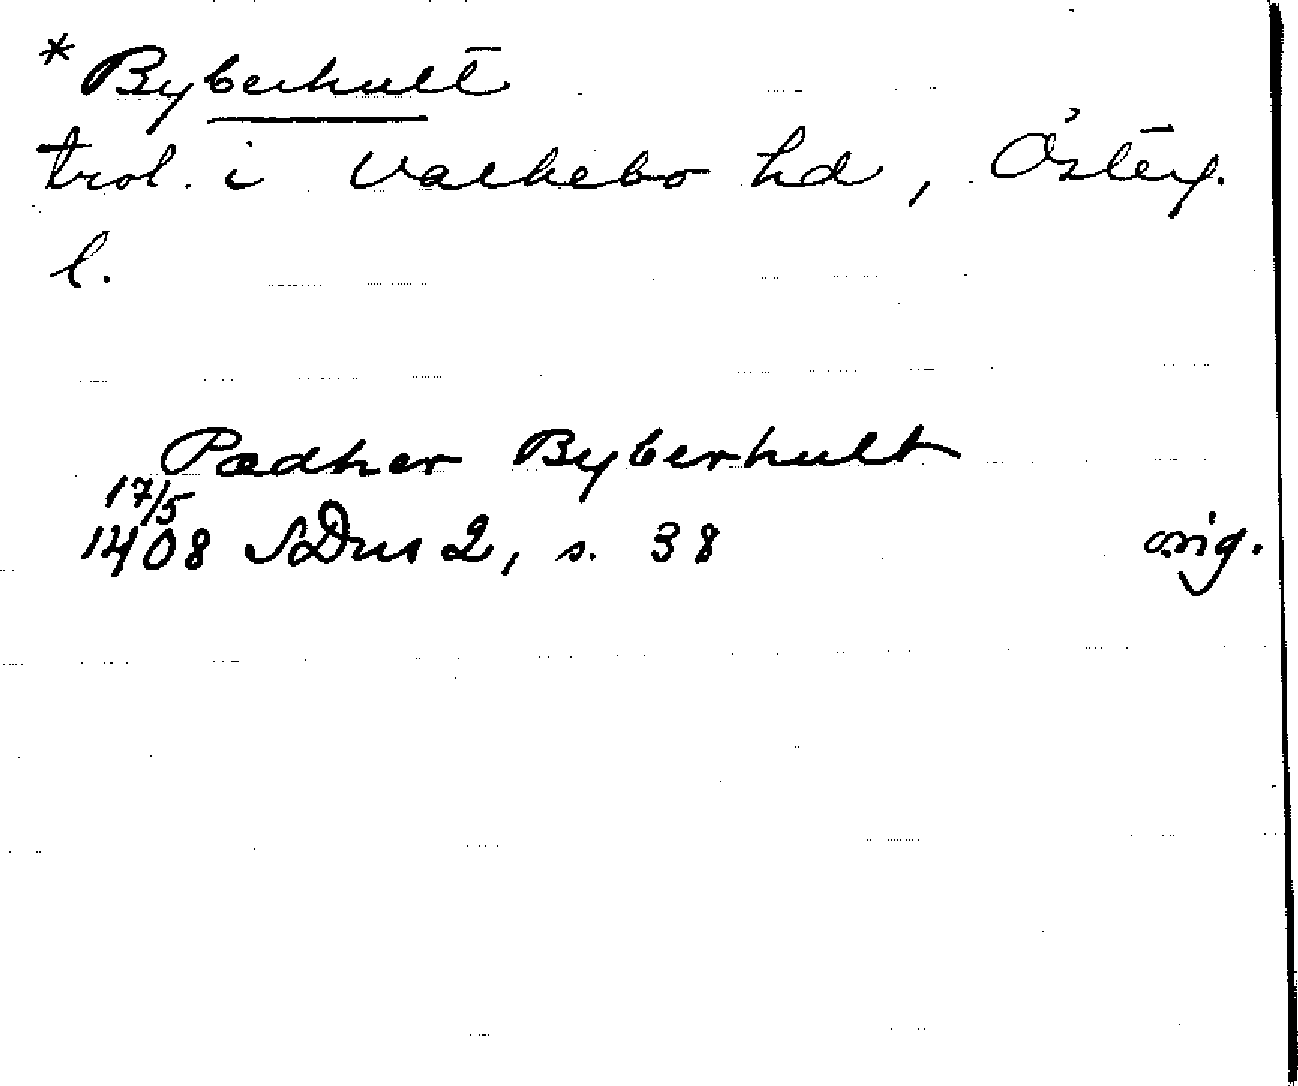 * Byberhult
trol. i Valkebo hd, Österg.
l.
Pædher Byberhult
17/5
1408 SDns 2, s. 38 orig.